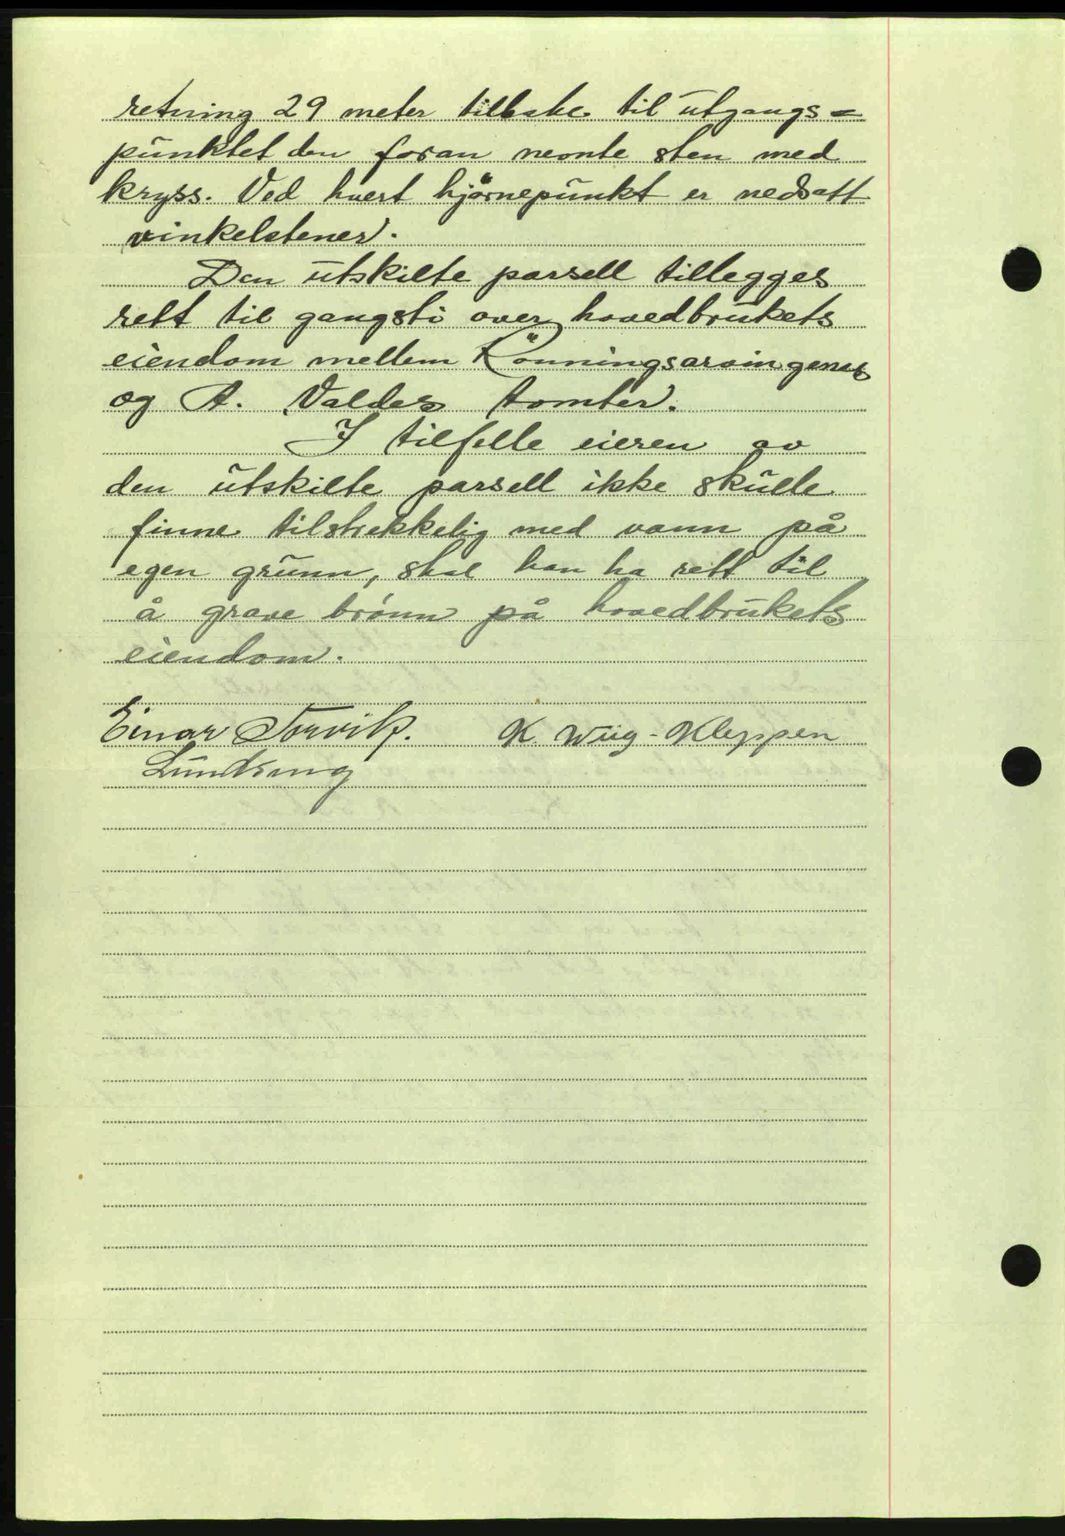 retning 29 meter tilbake til utgangs=
punktet den foran nevnte sten med
kryss. Ved hvert hjørnepunkt er nedsatt
vinkelstener.
Den utskilte parsell tillegges
rett til gangsti over hovedbrukets
eiendom mellem Rönningsarvingenes
og A. Valdes tomter.
I tilfelle eieren av
den utskilte parsell ikke skulle
finne tilstrekkelig med vann på
egen grunn, skal han ha rett til
å grave brønn på hovedbrukets
eiendom.
Einar Torvik. K. Wiig-Kleppen